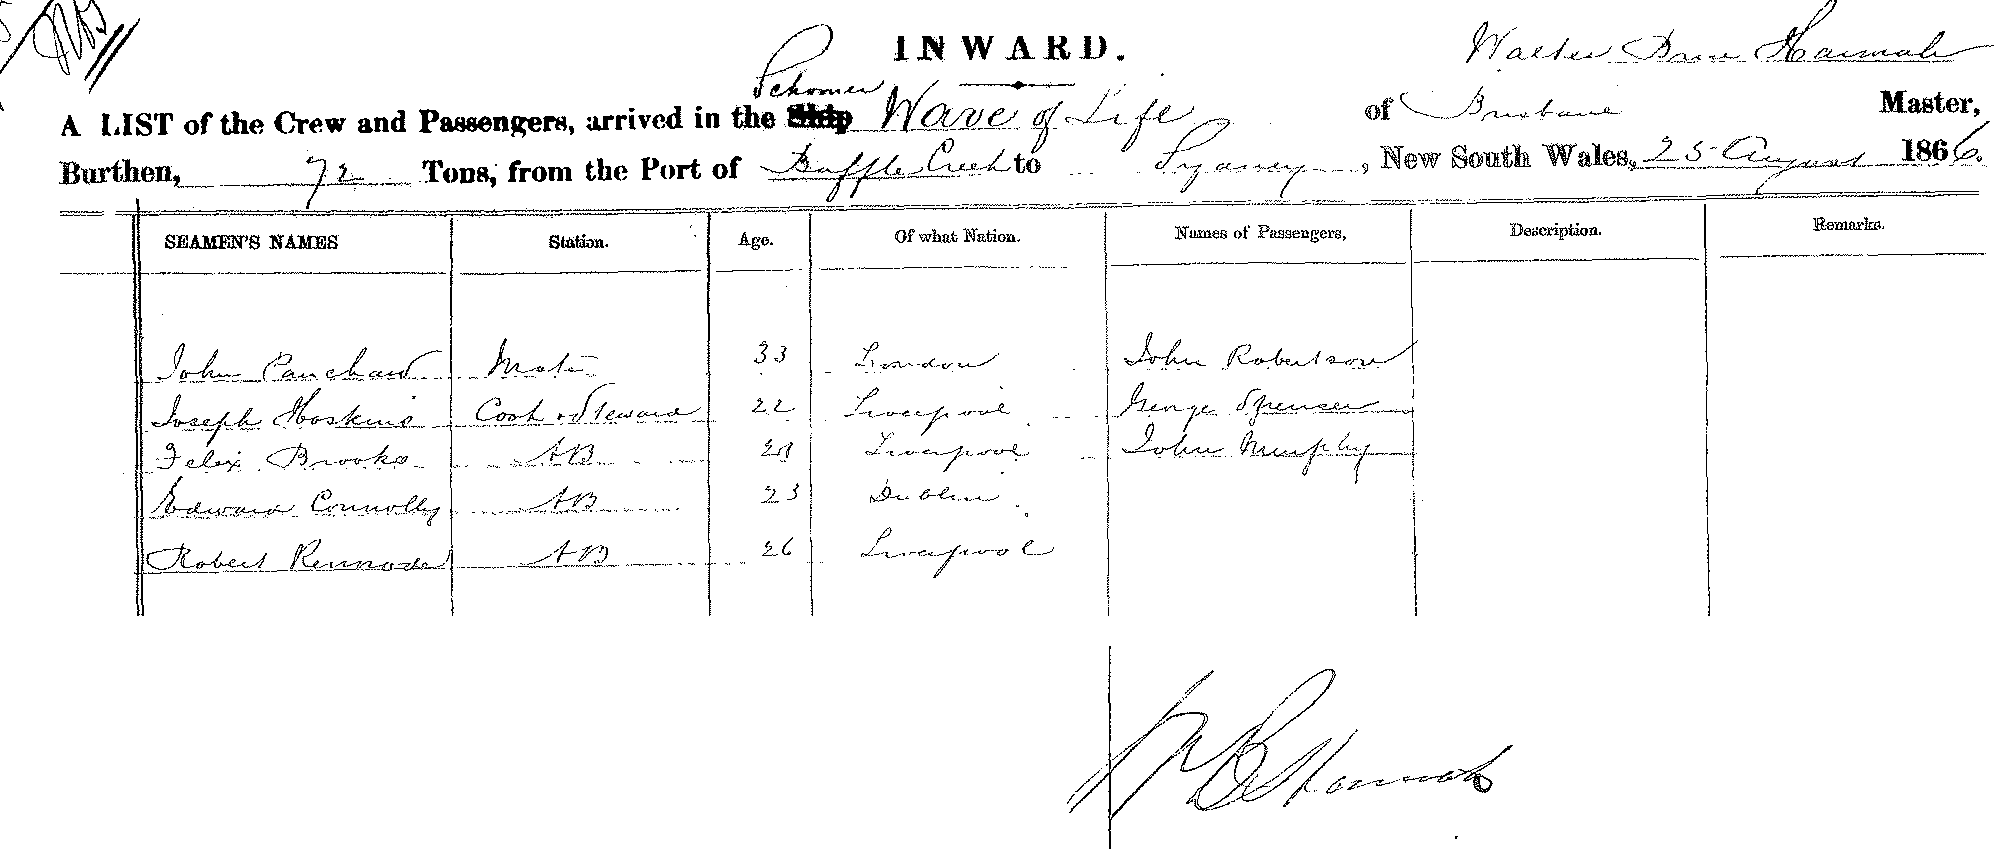 INWARD.
Walter Hannah
Schooner
A LIST of the Crew and Passengers, arrived in the Ship Wave of Life of Brisbane Master,
Burthen, 72 Tons, from the Port of Baffle Creek to Sydney, New South Wales, 25 August 1866.
SEAMEN'S NAMES Station. Age. Of what Nation. Names of Passengers, Description. Remarks.
John Panchaud Mate 33 London John Robertson
Joseph Hoskins Cook & Steward 22 Liverpool George Spenser
Felix Brooks AB Liverpool John Murphy
Edward Connolly AB 23 Dublin
Robert AB 26 Liverpool
W B Hannah